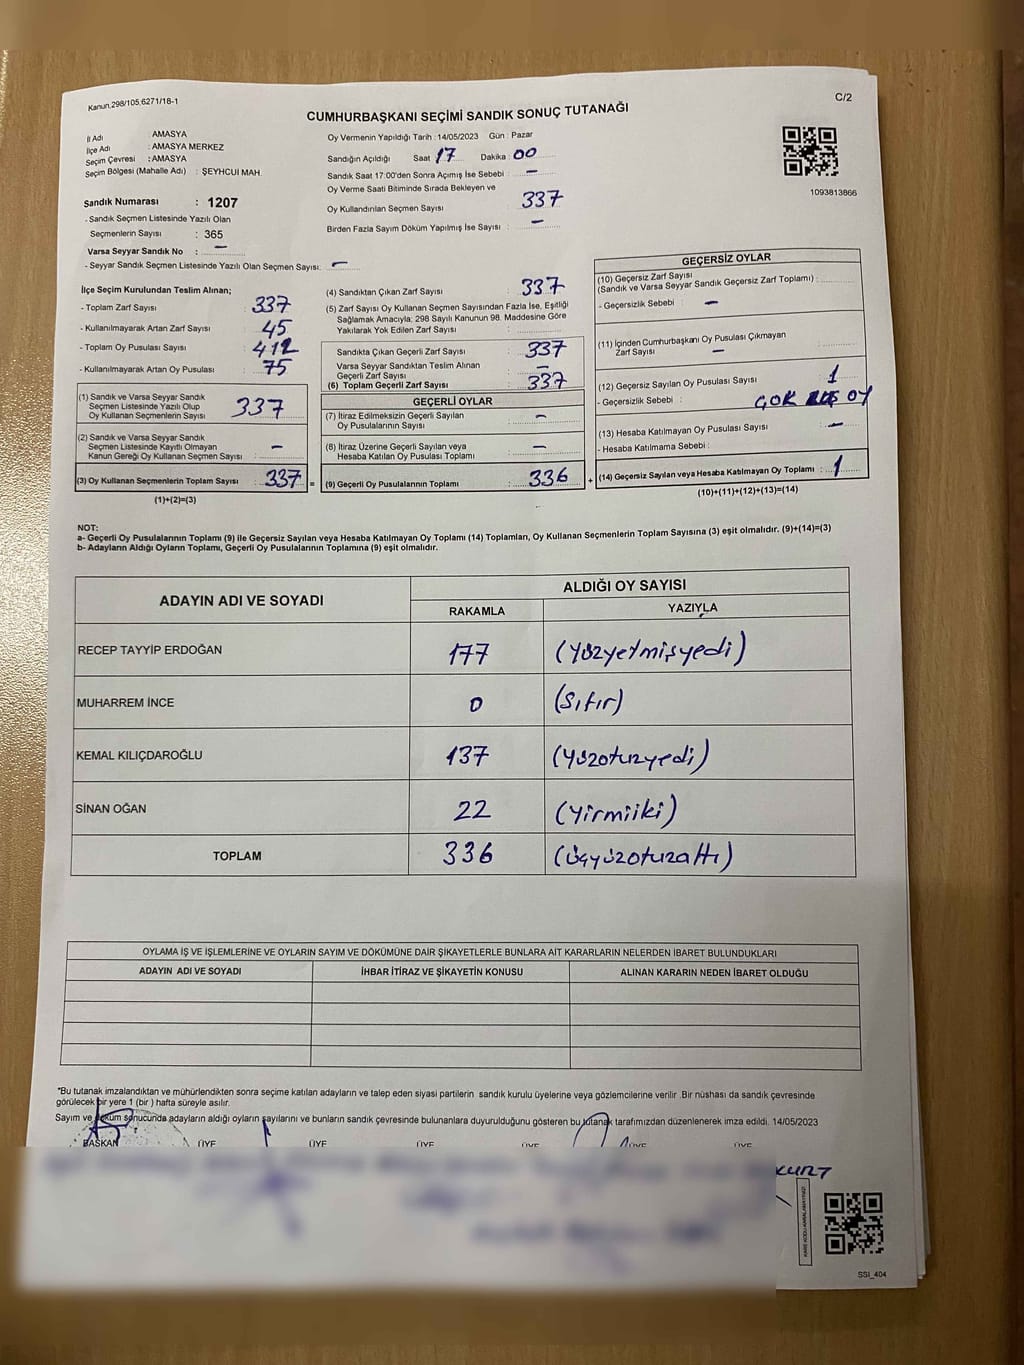 Kanun.298/105,6271/18-1
C/2
CUMHURBAŞKANI SEÇİMİ SANDIK SONUÇ TUTANAĞI
İl Adı : AMASYA
İlçe Adı : AMASYA MERKEZ
Seçim Çevresi : AMASYA
Seçim Bölgesi (Mahalle Adı) : ŞEYHCUI MAH.
Sandık Numarası : 1207
- Sandık Seçmen Listesinde Yazılı Olan
Seçmenlerin Sayısı : 365
Varsa Seyyar Sandık No : —
- Seyyar Sandık Seçmen Listesinde Yazılı Olan Seçmen Sayısı: —
Oy Vermenin Yapıldığı Tarih : 14/05/2023 Gün : Pazar
Sandığın Açıldığı Saat 17 Dakika : 00
Sandık Saat 17:00'den Sonra Açımış İse Sebebi : —
Oy Verme Saati Bitiminde Sırada Bekleyen ve
Oy Kullandırılan Seçmen Sayısı : 337
Birden Fazla Sayım Döküm Yapılmış İse Sayısı : —
1093813866
İlçe Seçim Kurulundan Teslim Alınan;
- Toplam Zarf Sayısı : 337
- Kullanılmayarak Artan Zarf Sayısı : 45
- Toplam Oy Pusulası Sayısı : 412
- Kullanılmayarak Artan Oy Pusulası : 75
(1) Sandık ve Varsa Seyyar Sandık
Seçmen Listesinde Yazılı Olup
Oy Kullanan Seçmenlerin Sayısı 337
(2) Sandık ve Varsa Seyyar Sandık
Seçmen Listesinde Kayıtlı Olmayan
Kanun Gereği Oy Kullanan Seçmen Sayısı : —
(3) Oy Kullanan Seçmenlerin Toplam Sayısı : 337 =
(1)+(2)=(3)
(4) Sandıktan Çıkan Zarf Sayısı : 337
(5) Zarf Sayısı Oy Kullanan Seçmen Sayısından Fazla İse, Eşitliği
Sağlamak Amacıyla; 298 Sayılı Kanunun 98. Maddesine Göre
Yakılarak Yok Edilen Zarf Sayısı :
Sandıkta Çıkan Geçerli Zarf Sayısı : 337
Varsa Seyyar Sandıktan Teslim Alınan
Geçerli Zarf Sayısı : —
(6) Toplam Geçerli Zarf Sayısı : 337
GEÇERLİ OYLAR
(7) İtiraz Edilmeksizin Geçerli Sayılan
Oy Pusulalarının Sayısı : —
(8) İtiraz Üzerine Geçerli Sayılan veya
Hesaba Katılan Oy Pusulası Toplamı : —
(9) Geçerli Oy Pusulalarının Toplamı : 336 +
GEÇERSİZ OYLAR
(10) Geçersiz Zarf Sayısı
(Sandık ve Varsa Seyyar Sandık Geçersiz Zarf Toplamı) :
- Geçersizlik Sebebi : —
(11) İçinden Cumhurbaşkanı Oy Pusulası Çıkmayan
Zarf Sayısı : —
(12) Geçersiz Sayılan Oy Pusulası Sayısı : 1
- Geçersizlik Sebebi : ÇOK OY
(13) Hesaba Katılmayan Oy Pusulası Sayısı : —
- Hesaba Katılmama Sebebi :
(14) Geçersiz Sayılan veya Hesaba Katılmayan Oy Toplamı : 1
(10)+(11)+(12)+(13)=(14)
NOT:
a- Geçerli Oy Pusulalarının Toplamı (9) ile Geçersiz Sayılan veya Hesaba Katılmayan Oy Toplamı (14) Toplamları, Oy Kullanan Seçmenlerin Toplam Sayısına (3) eşit olmalıdır. (9)+(14)=(3)
b- Adayların Aldığı Oyların Toplamı, Geçerli Oy Pusulalarının Toplamına (9) eşit olmalıdır.
ADAYIN ADI VE SOYADI
ALDIĞI OY SAYISI
RAKAMLA YAZIYLA
RECEP TAYYİP ERDOĞAN 177 (Yüzyetmişyedi)
MUHARREM İNCE 0 (Sıfır)
KEMAL KILIÇDAROĞLU 137 (Yüzotuzyedi)
SİNAN OĞAN 22 (Yirmiiki)
TOPLAM 336 (Üçyüzotuzaltı)
OYLAMA İŞ VE İŞLEMLERİNE VE OYLARIN SAYIM VE DÖKÜMÜNE DAİR ŞİKAYETLERLE BUNLARA AİT KARARLARIN NELERDEN İBARET BULUNDUKLARI
ADAYIN ADI VE SOYADI İHBAR İTİRAZ VE ŞİKAYETİN KONUSU ALINAN KARARIN NEDEN İBARET OLDUĞU
*Bu tutanak imzalandıktan ve mühürlendikten sonra seçime katılan adayların ve talep eden siyasi partilerin sandık kurulu üyelerine veya gözlemcilerine verilir .Bir nüshası da sandık çevresinde
görülecek bir yere 1 (bir ) hafta süreyle asılır.
Sayım ve döküm sonucunda adayların aldığı oyların sayılarını ve bunların sandık çevresinde bulunanlara duyurulduğunu gösteren bu tutanak tarafımızdan düzenlenerek imza edildi. 14/05/2023
BAŞKAN ÜYE ÜYE ÜYE ÜYE ÜYE ÜYE
KURT
SSI_404